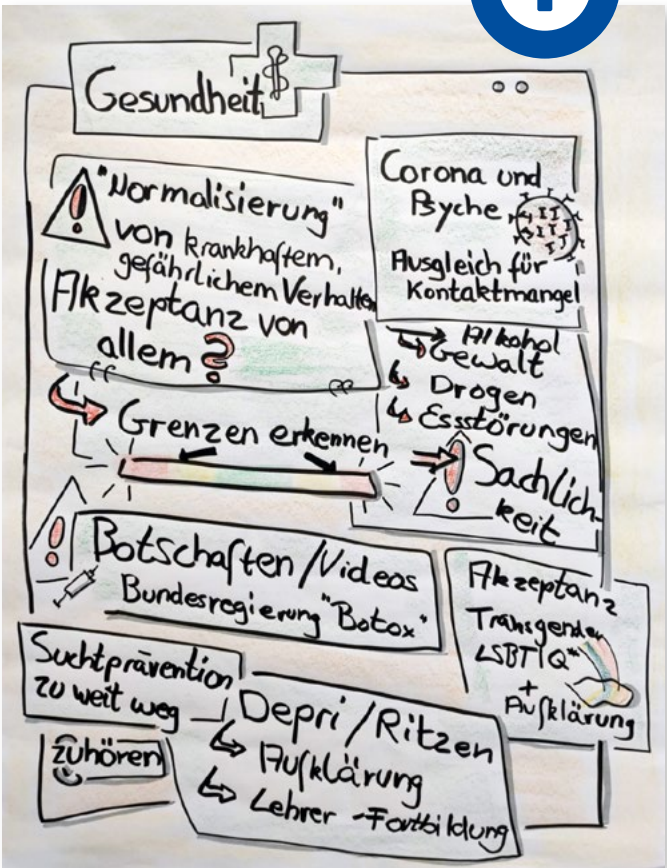 Gesundheit
"Normalisierung"
von krankhaftem,
gefährlichem Verhalten
Akzeptanz von
allem ?
Corona und
Psyche
Ausgleich für
Kontaktmangel
Alkohol
Gewalt
Drogen
Essstörungen
Grenzen erkennen
Sachlich-
keit
Botschaften/Videos
Bundesregierung "Botox"
Akzeptanz
Transgender
LSBTIQ*
+
Aufklärung
Suchtprävention
zu weit weg
zuhören
Depri/Ritzen
Aufklärung
Lehrer-Fortbildung